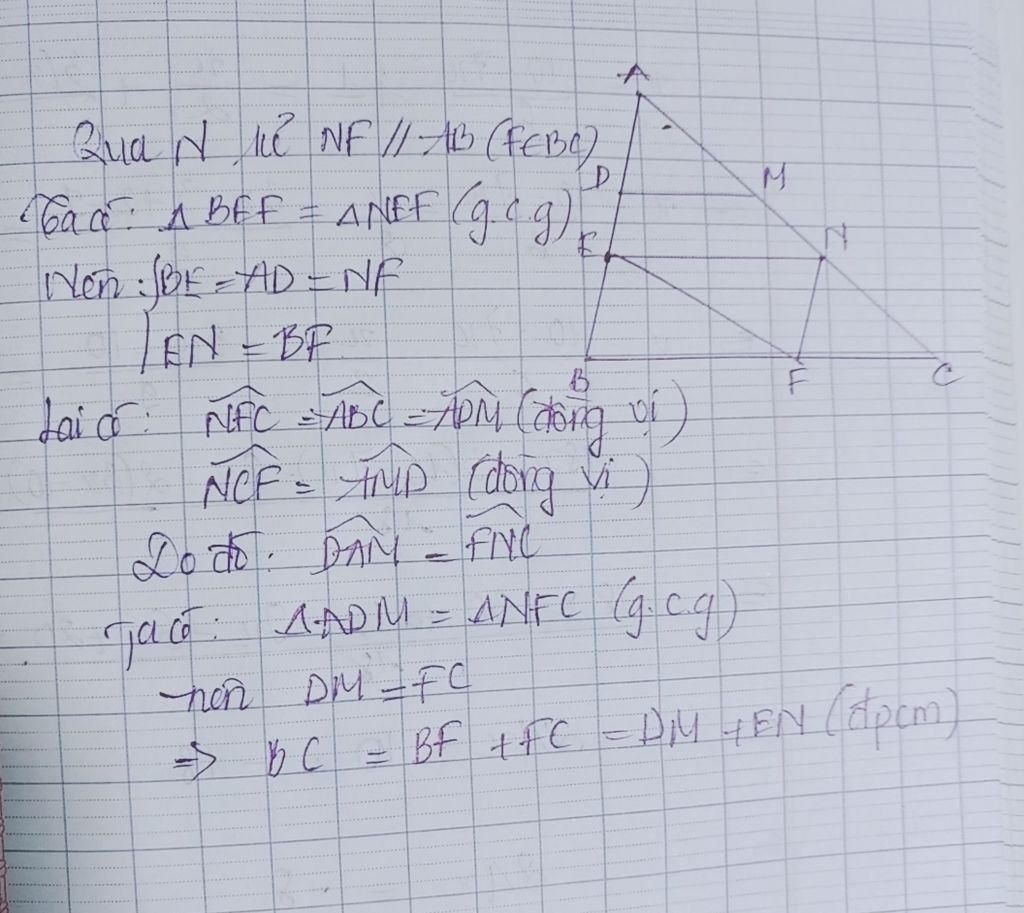 Qua N kẻ NF // AB (F∈BC)
Ta có: Δ BEF = Δ NEF (g.c.g)
Nên: { BE = AD = NF
EN = BF
Lại có: \widehat{NFC} = \widehat{ABC} = \widehat{ADM} (đồng vị)
\widehat{NCF} = \widehat{AMD} (đồng vị)
Do đó: \widehat{DAM} = \widehat{FNC}
Ta có: Δ ADM = Δ NFC (g.c.g)
nên DM = FC
=> BC = BF + FC = DM + EN (đpcm)
A
D
M
E
N
B
F
C